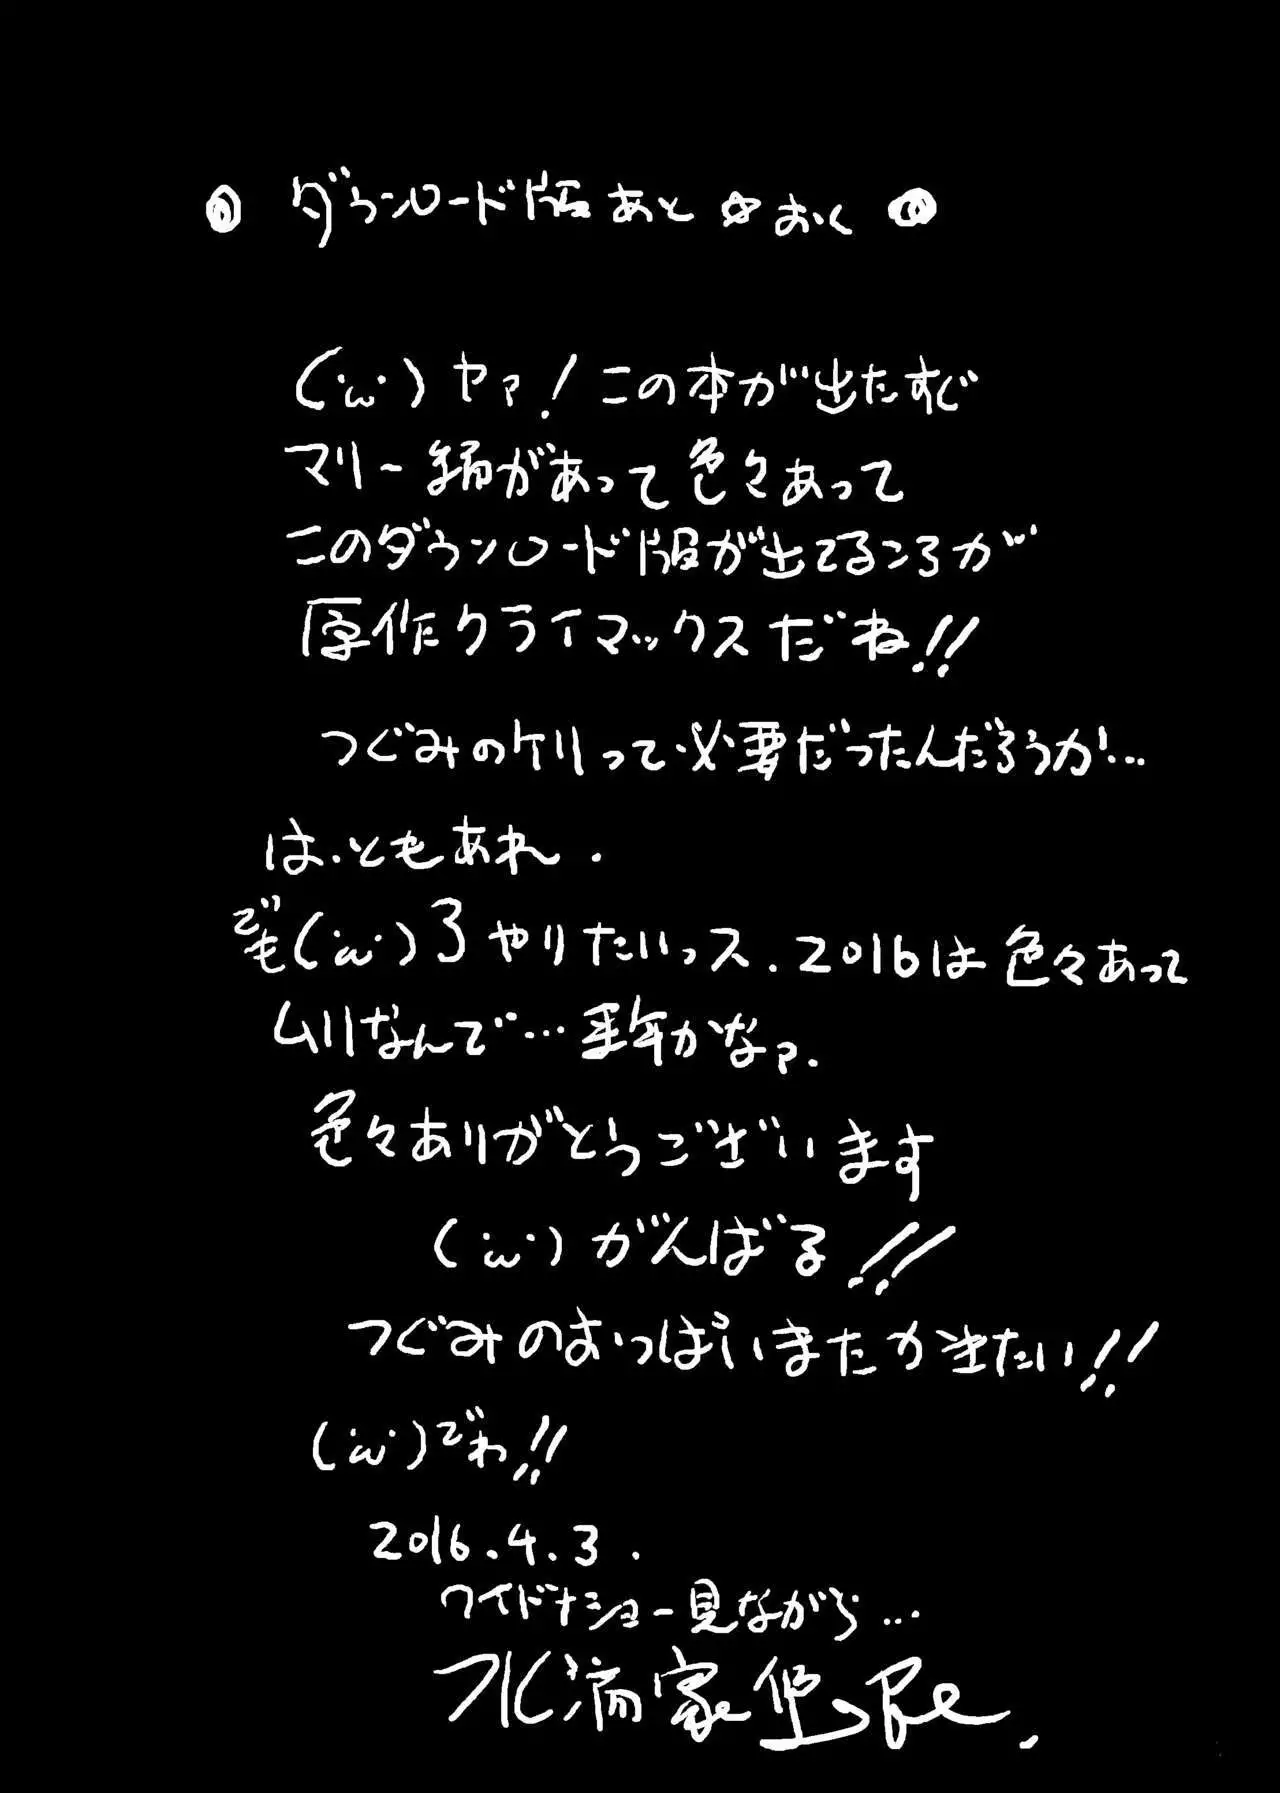 ダウンロード版あと☆おく
(´・ω・`)ヤァ!この本が出たすぐ
マリー編があって色々あって
このダウンロード版が出てるころが
原作クライマックスだね!!
つぐみのケリって必要だったんだろうか…
は、ともあれ.
でも(´・ω・`)3やりたいっス.2016は色々あって
ムリなんで…来年かなァ.
色々ありがとうございます
(´・ω・`)がんばる!!
つぐみのおっぱいまたかきたい!!
(´・ω・`)でわ!!
2016.4.3.
ワイドナショー見ながら…